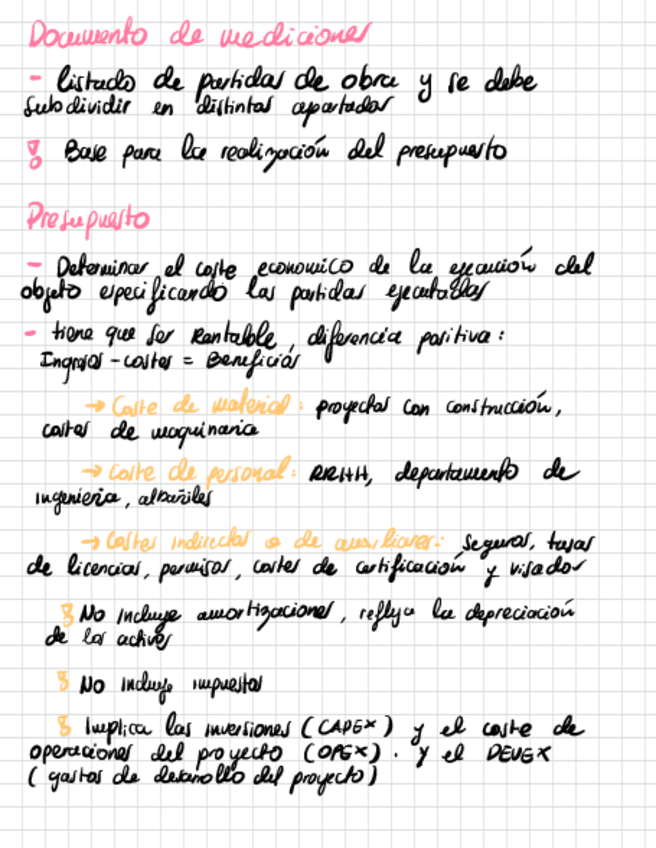 Documento de mediciones
- listado de partidas de obra y se debe
subdividir en distintos apartados
Base para la realización del presupuesto
Presupuesto
- Determinar el coste económico de la ejecución del
objeto especificando las partidas ejecutables
- tiene que ser Rentable, diferencia positiva:
Ingresos - costes = Beneficios
→ Coste de material: proyectos con construcción,
costes de maquinaria
→ Coste de personal: RRHH, departamento de
ingeniería, albañiles
→ Costes indirectos o de auxiliares: seguros, tasas
de licencias, permisos, costes de certificación y visados
No incluye amortizaciones, refleja la depreciación
de los activos
No incluye impuestos
Implica las inversiones (CAPEX) y el coste de
operaciones del proyecto (OPEX). Y el DEVEX
(gastos de desarrollo del proyecto)